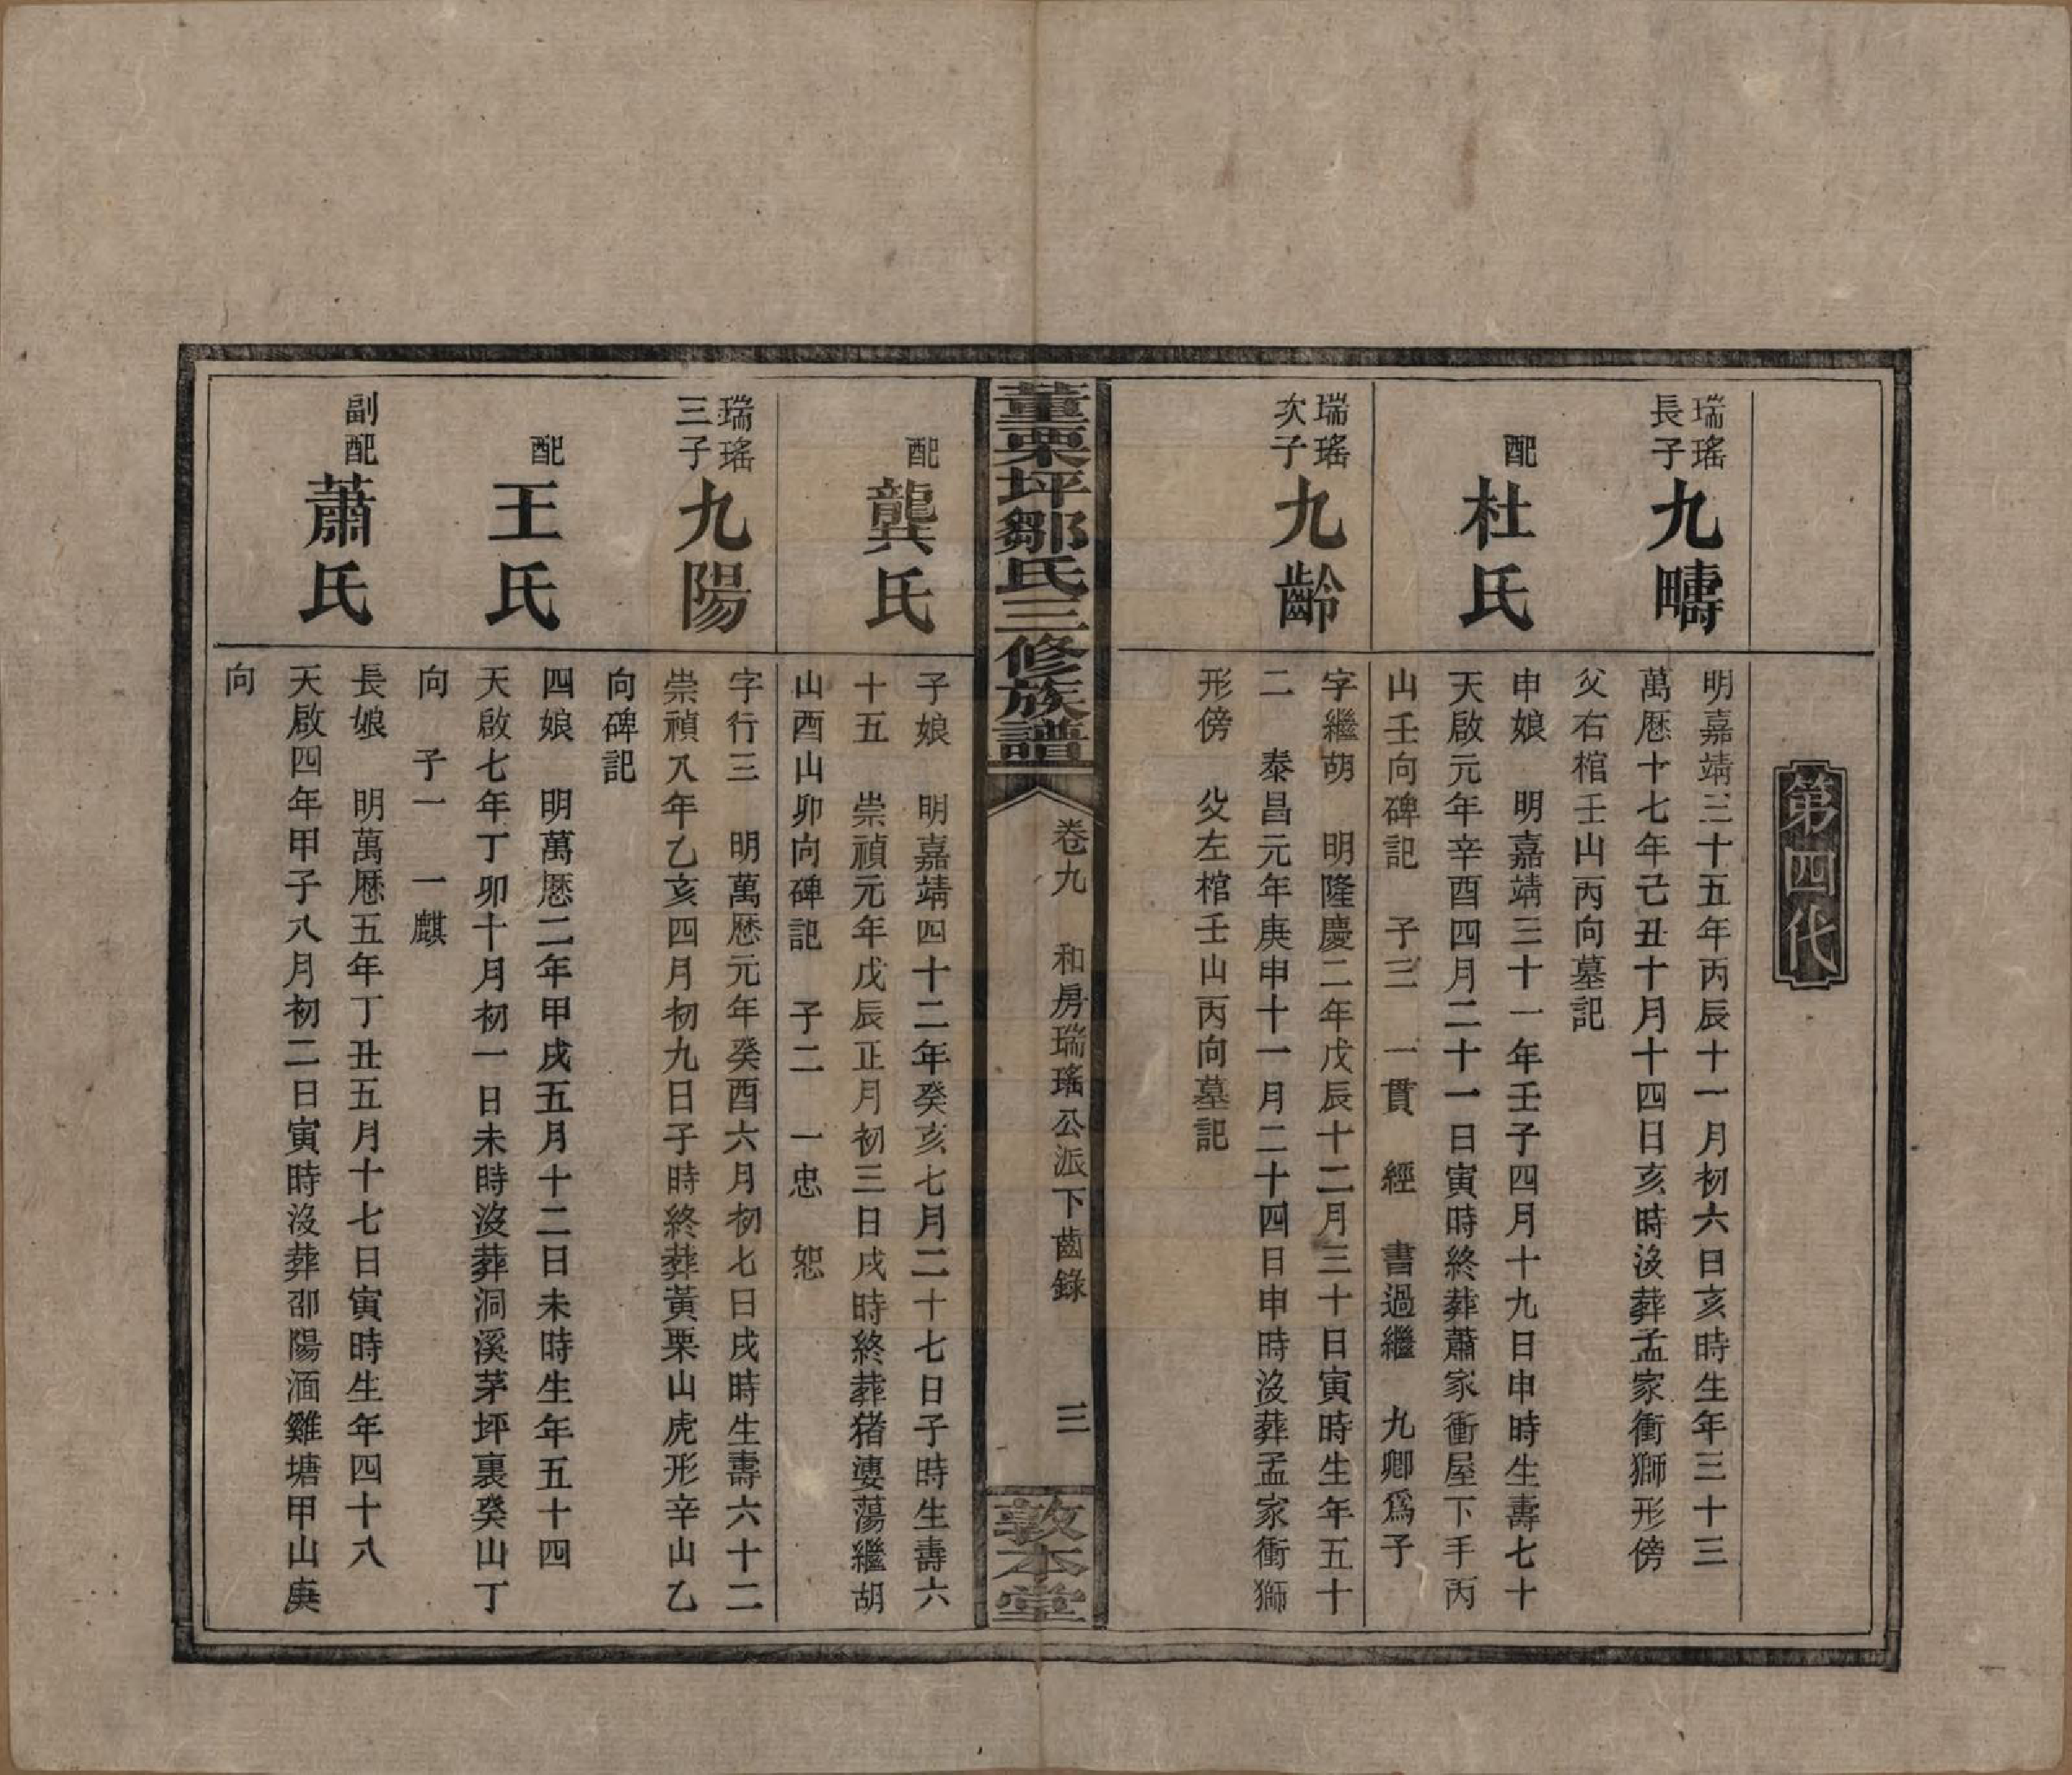 第四代
瑞瑤
長子
九疇
明嘉靖三十五年丙辰十一月初六日亥時生年三十三
萬歷十七年己丑十月十四日亥時沒葬孟家衝獅形傍
父右棺壬山丙向墓記
配
杜氏
申娘 明嘉靖三十一年壬子四月十九日申時生壽七十
天啟元年辛酉四月二十一日寅時終葬蕭家衝屋下手丙
山壬向碑記 子三 一貫 經 書過繼 九卿爲子
瑞瑤
次子
九齡
字繼胡 明隆慶二年戊辰十二月三十日寅時生年五十
二 泰昌元年庚申十一月二十四日申時沒葬孟家衝獅
形傍 父左棺壬山丙向墓記
董栗坪鄒氏三修族譜
卷九 和房瑞瑤公派下齒錄 三
敦本堂
配
龔氏
子娘 明嘉靖四十二年癸亥七月二十七日子時生壽六
十五 崇禎元年戊辰正月初三日戌時終葬猪婆蕩繼胡
山酉山卯向碑記 子二 一忠 恕
瑞瑤
三子
九陽
字行三 明萬歷元年癸酉六月初七日戌時生壽六十二
崇禎八年乙亥四月初九日子時終葬黃栗山虎形辛山乙
向碑記
配
王氏
四娘 明萬歷二年甲戌五月十二日未時生年五十四
天啟七年丁卯十月初一日未時沒葬洞溪茅坪裏癸山丁
向 子一 一麒
副配
蕭氏
長娘 明萬歷五年丁丑五月十七日寅時生年四十八
天啟四年甲子八月初二日寅時沒葬邵陽湎雞塘甲山庚
向